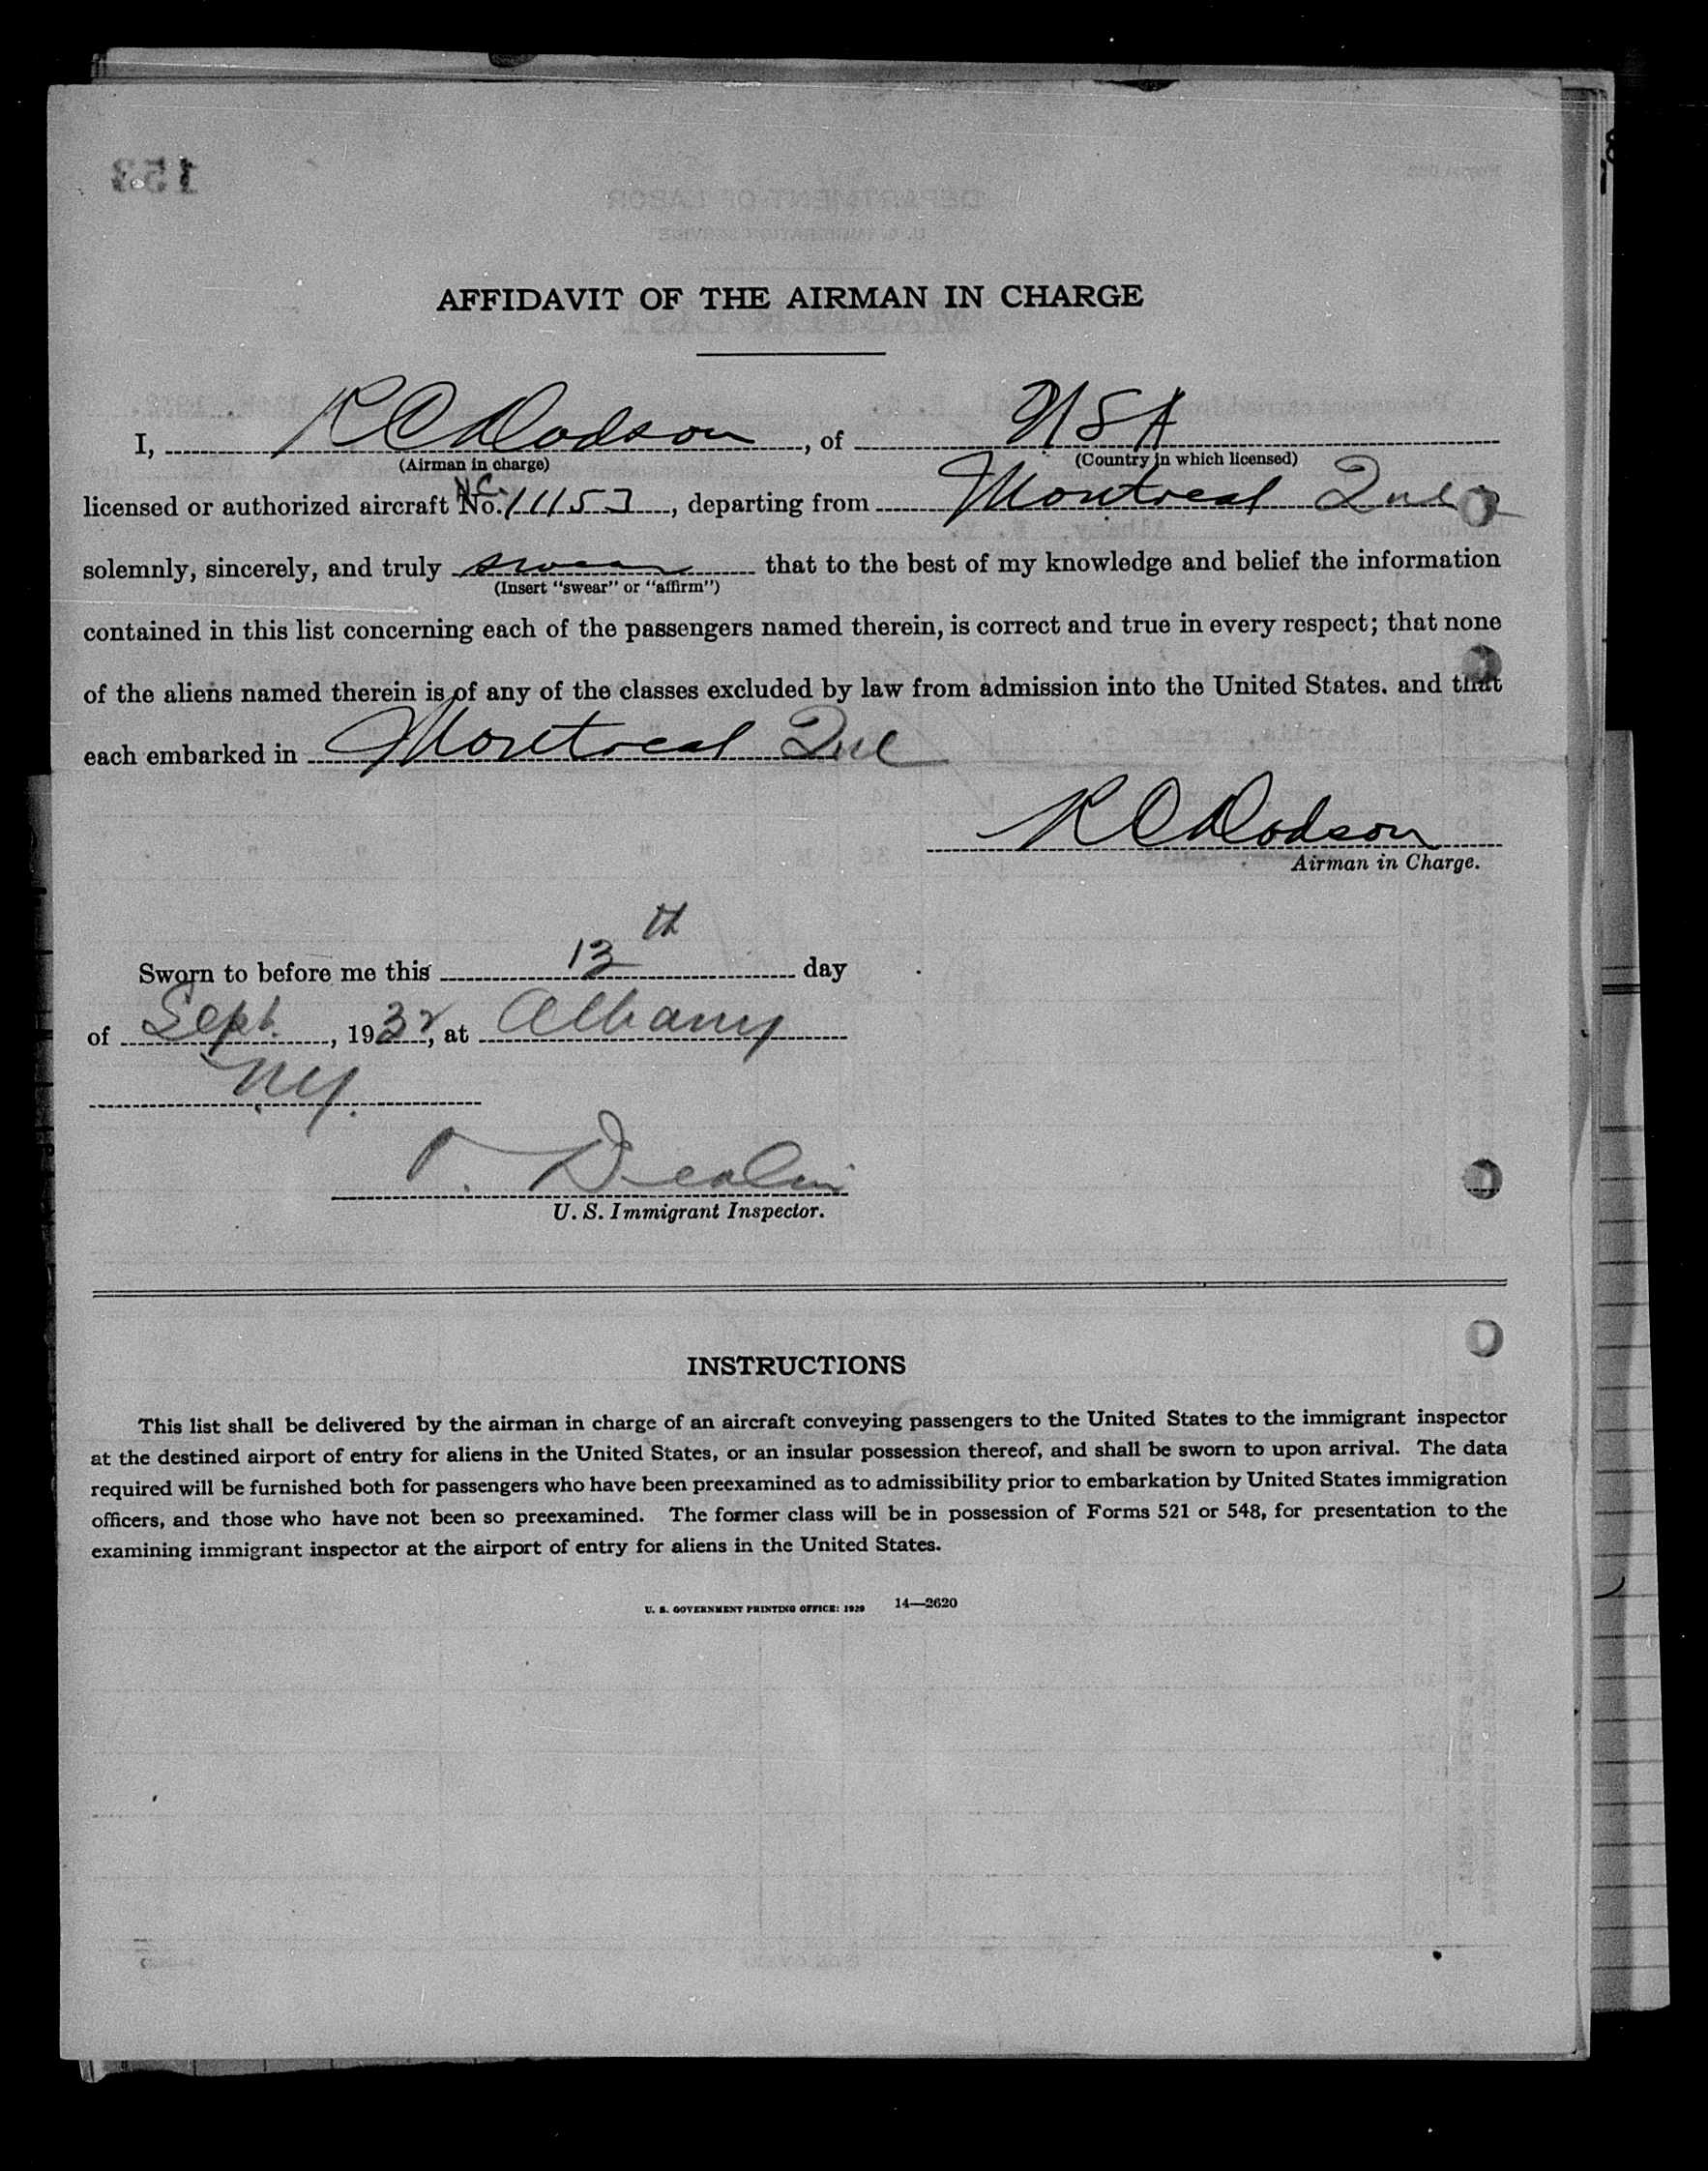 AFFIDAVIT OF THE AIRMAN IN CHARGE
I, R C Dodson, of USA
(Airman in charge) (Country in which licensed)
licensed or authorized aircraft No. N.C. 11153, departing from Montreal Que
solemnly, sincerely, and truly swear that to the best of my knowledge and belief the information
(Insert "swear" or "affirm")
contained in this list concerning each of the passengers named therein, is correct and true in every respect; that none
of the aliens named therein is of any of the classes excluded by law from admission into the United States. and that
each embarked in Montreal Que
R C Dodson
Airman in Charge.
Sworn to before me this 13th day
of Sept., 1932, at Albany
N.Y.
U. S. Immigrant Inspector.
INSTRUCTIONS
This list shall be delivered by the airman in charge of an aircraft conveying passengers to the United States to the immigrant inspector
at the destined airport of entry for aliens in the United States, or an insular possession thereof, and shall be sworn to upon arrival. The data
required will be furnished both for passengers who have been preexamined as to admissibility prior to embarkation by United States immigration
officers, and those who have not been so preexamined. The former class will be in possession of Forms 521 or 548, for presentation to the
examining immigrant inspector at the airport of entry for aliens in the United States.
U. S. GOVERNMENT PRINTING OFFICE: 1929 14—2620